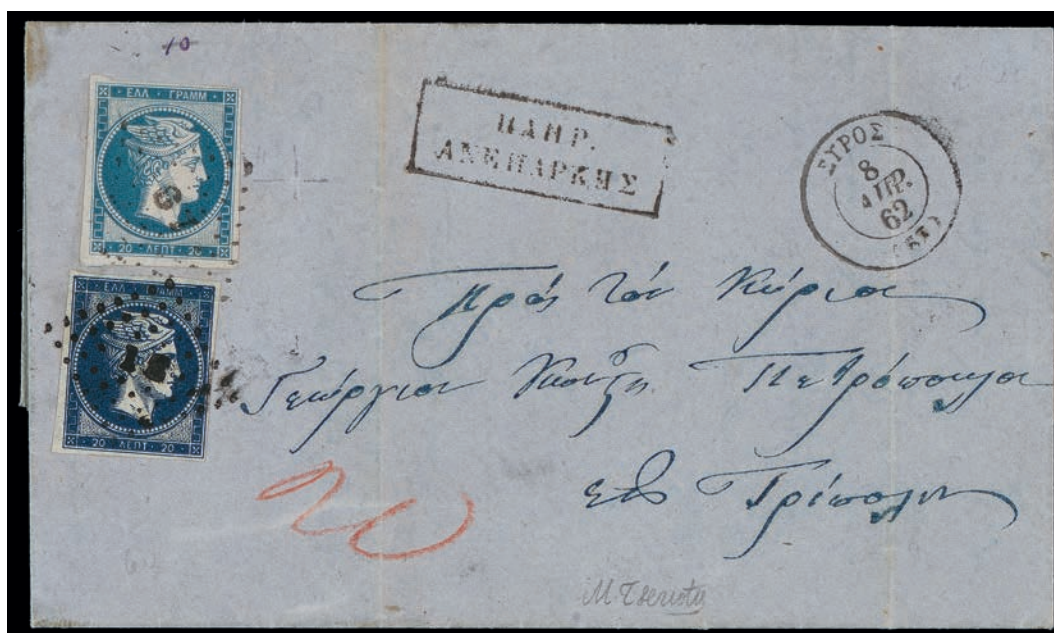 10
ΕΛΛ ΓΡΑΜΜ
20 ΛΕΠΤ 20
ΕΛΛ ΓΡΑΜΜ
20 ΛΕΠΤ 20
ΠΛΗΡ.
ΑΝΕΠΑΡΚΗΣ
ΣΥΡΟΣ
8
ΑΠΡ.
62
Πρὸς τὸν Κύριον
Γεώργιον Πετρόπουλον
εἰς Τρίπολιν
20